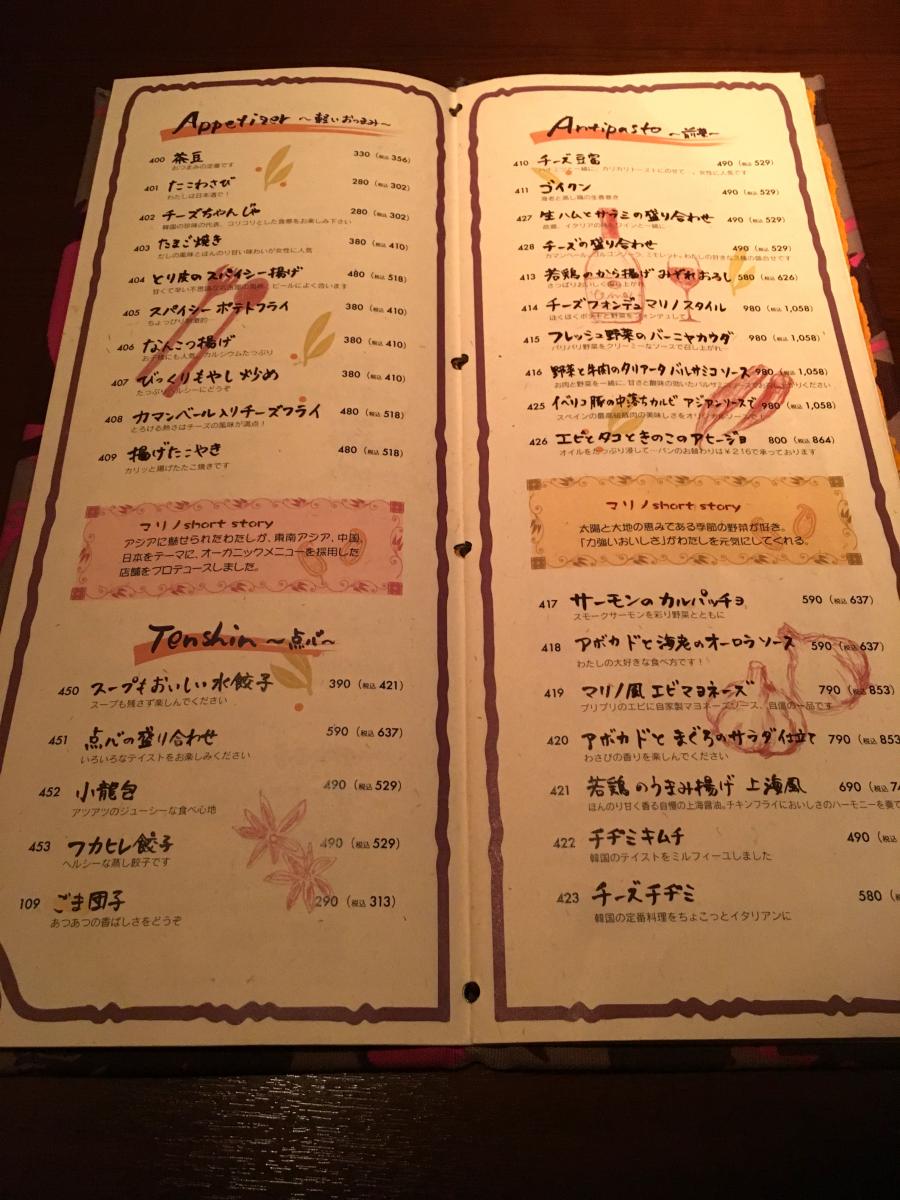 Appetizer ～軽いおつまみ～
400 茶豆 330（税込 356）
おつまみの定番です
401 たこわさび 280（税込 302）
わたしは日本酒で！
402 チーズちゃんじゃ 280（税込 302）
韓国の珍味の代表、コリコリとした食感をお楽しみ下さい
403 たまご焼き 380（税込 410）
だしの風味とほんのり甘い味わいが女性に人気
404 とり皮のスパイシー揚げ 480（税込 518）
甘くて辛い不思議な ビールによく合います
405 スパイシーポテトフライ 380（税込 410）
ちょっぴり刺激的
406 なんこつ揚げ 380（税込 410）
お子様にも人気、カルシウムたっぷり
407 びっくりもやし炒め 380（税込 410）
たっぷりヘルシーにどうぞ
408 カマンベール入りチーズフライ 480（税込 518）
とろける熱さはチーズの風味が満点！
409 揚げたこやき 480（税込 518）
カリッと揚げたたこ焼きです
マリノshort story
アジアに魅せられたわたしが、東南アジア、中国、
日本をテーマに、オーガニックメニューを採用した
店舗をプロデュースしました。
Tenshin ～点心～
450 スープもおいしい水餃子 390（税込 421）
スープも残さず楽しんでください
451 点心の盛り合わせ 590（税込 637）
いろいろなテイストをお楽しみください
452 小龍包 490（税込 529）
アツアツのジューシーな食べ心地
453 フカヒレ餃子 490（税込 529）
ヘルシーな蒸し餃子です
109 ごま団子 290（税込 313）
あつあつの香ばしさをどうぞ
Antipasto ～前菜～
410 チーズ豆富 490（税込 529）
一緒に、カリカリトーストにのせて…。女性に人気です
411 ゴイクン 490（税込 529）
海老と蒸し鶏の生春巻き
427 生ハムとサラミの盛り合わせ 490（税込 529）
イタリアの味をワインと一緒に
428 チーズの盛り合わせ 490（税込 529）
カマンベール、ゴルゴンゾーラ、ミモレット。わたしの好きな3種の盛合せです
413 若鶏のから揚げ みぞれおろし 580（税込 626）
さっぱりおいしく
414 チーズフォンデュ マリノスタイル 980（税込 1,058）
ほくほくポテトと野菜をフォンデュして
415 フレッシュ野菜のバーニャカウダ 980（税込 1,058）
パリパリ野菜をクリーミーなソースで召し上がれ
416 野菜と牛肉のタリアータ バルサミコソース 980（税込 1,058）
お肉と野菜を一緒に、甘さと酸味の効いたバルサミコソースでお召し上がりください
425 イベリコ豚の中落ちカルビ アジアンソースで 980（税込 1,058）
スペインの最高級筋肉の美味しさをオリジナルソースで！
426 エビとタコときのこのアヒージョ 800（税込 864）
オイルをたっぷり浸して…パンのお替わりは￥216で承っております
マリノshort story
太陽と大地の恵みである季節の野菜が好き。
「力強いおいしさ」がわたしを元気にしてくれる。
417 サーモンのカルパッチョ 590（税込 637）
スモークサーモンを彩り野菜とともに
418 アボカドと海老のオーロラソース 590（税込 637）
わたしの大好きな食べ方です！
419 マリノ風エビマヨネーズ 790（税込 853）
プリプリのエビに自家製マヨネーズソース、自信の一品です
420 アボカドとまぐろのサラダ仕立て 790（税込 853
わさびの香りを楽しんでください
421 若鶏のうまみ揚げ 上海風 690（税込 74
ほんのり甘く香る自慢の上海醤油。チキンフライにおいしさのハーモニーを奏で
422 チヂミキムチ 490（税込
韓国のテイストをミルフィーユしました
423 チーズチヂミ 580（税
韓国の定番料理をちょこっとイタリアンに